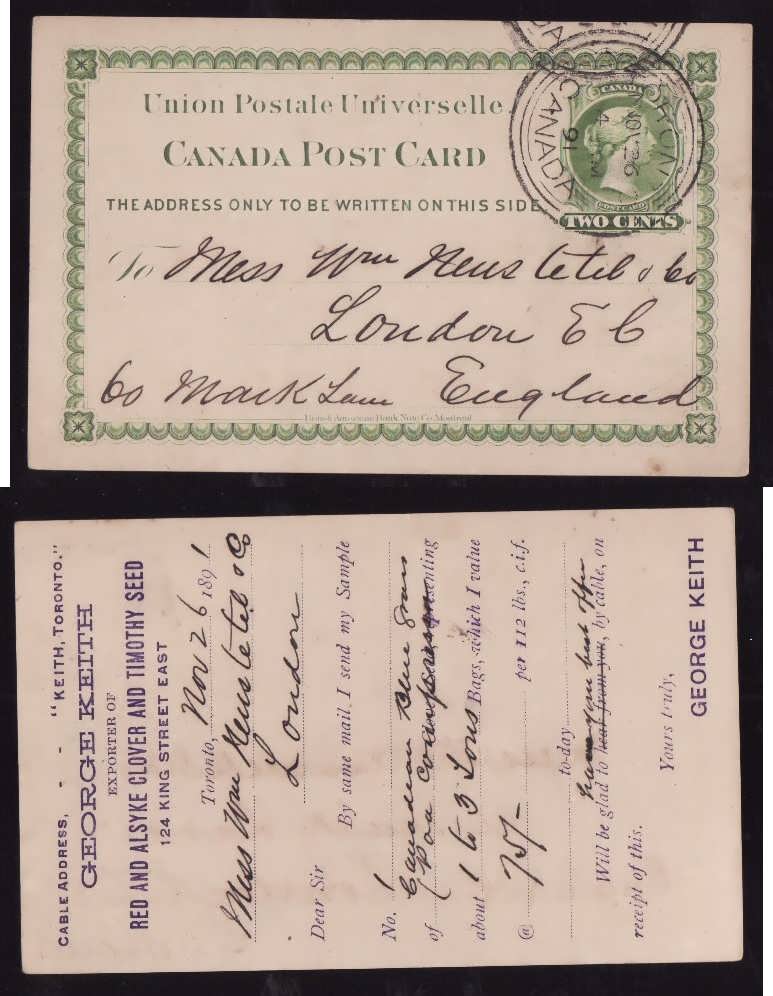 Union Postale Universelle.
CANADA POST CARD
THE ADDRESS ONLY TO BE WRITTEN ON THIS SIDE
CANADA
POST CARD
TWO CENTS
TORONTO
NOV 26
4 PM
91
CANADA
To Mess Wm Neustetel & Co
London E C
60 Mark Lane England
British American Bank Note Co. Montreal
CABLE ADDRESS, - - "KEITH, TORONTO."
GEORGE KEITH
EXPORTER OF
RED AND ALSYKE CLOVER AND TIMOTHY SEED
124 KING STREET EAST
Toronto, Nov 26 1891
Mess Wm Neustetel & Co
London
Dear Sir
By same mail I send my Sample
No. 1 Canadian Blue Grass
of (Poa Compressa) representing
about 1 to 3 Tons Bags, which I value
@ 75/- per 112 lbs., c.i.f.
to-day
have your best offer
Will be glad to hear from you, by cable, on
receipt of this.
Yours truly,
GEORGE KEITH